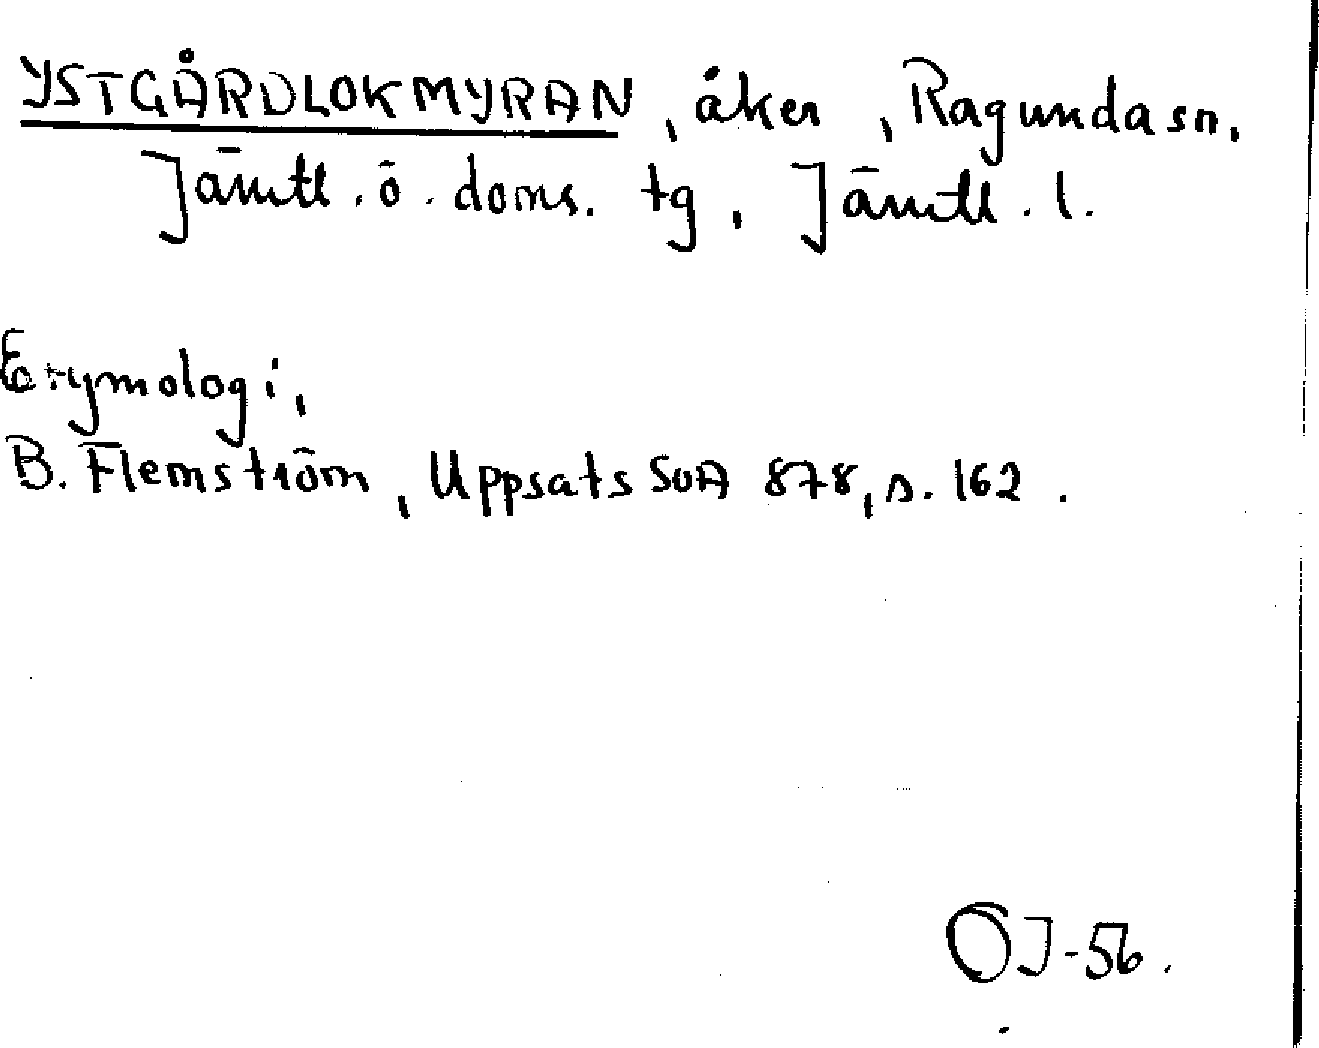 YSTGÅRDLOKMYRAN, åker, Ragunda sn.
Jämtl. ö. doms. tg, Jämtl. l.
Etymologi,
B. Flemström, Uppsats SOA 878, s. 162.
OJ-56.